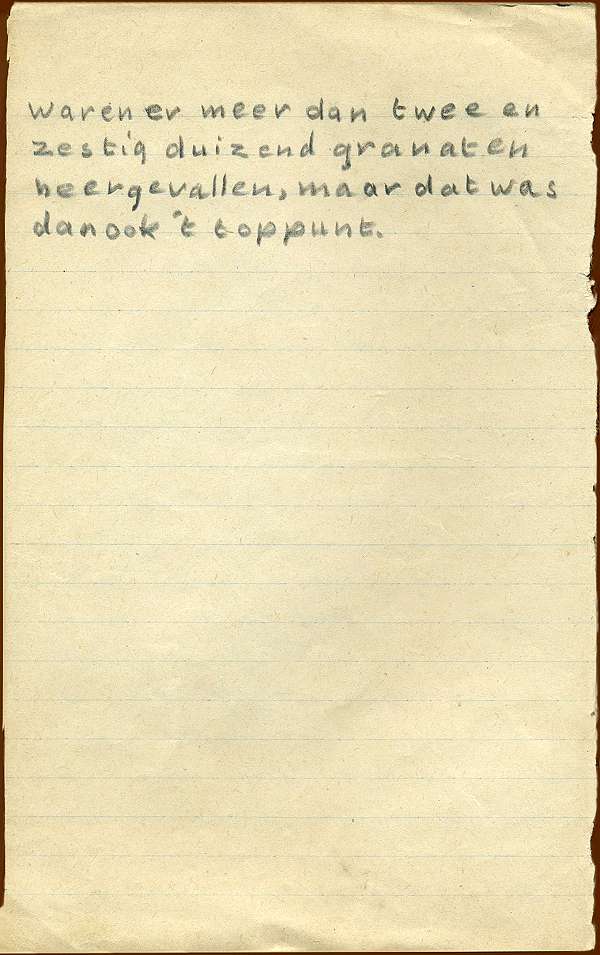 waren er meer dan twee en
zestig duizend granaten
neergevallen, maar dat was
dan ook 't toppunt.